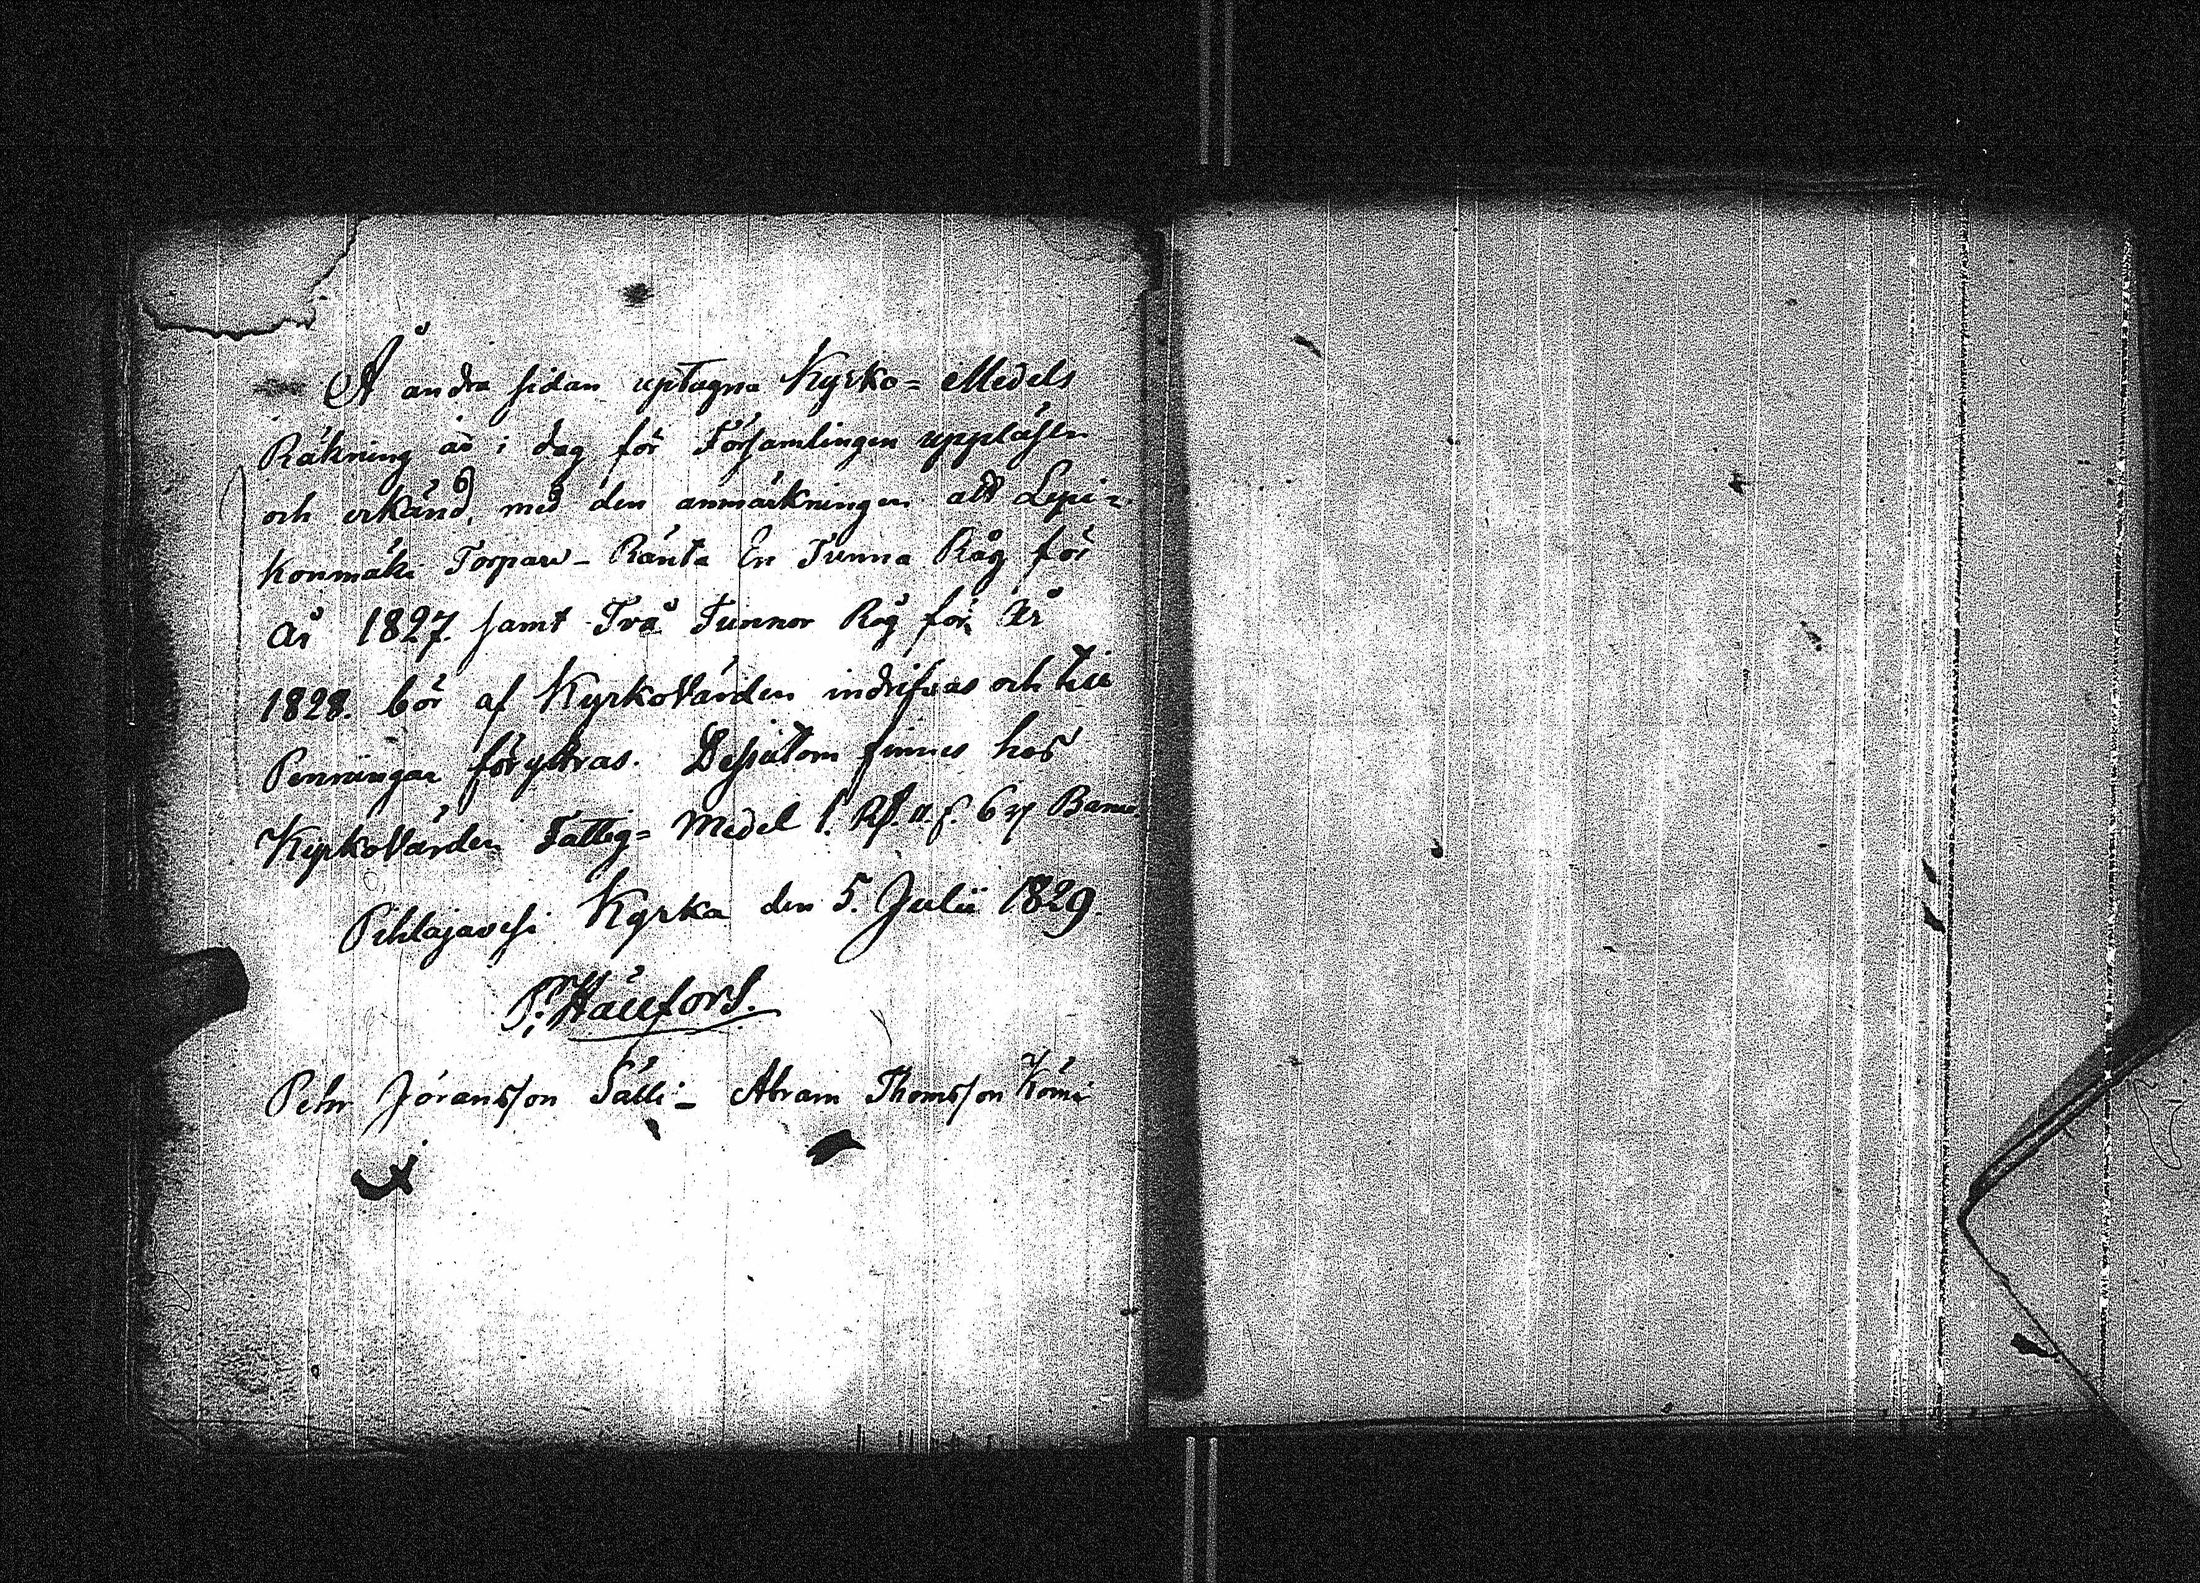 Å andra sidan uptagna Kyrko= Medels
Räkning är i dag för Församlingen uppläsen
och erkänd, med den anmärkningen att Lepi=
konmäki Torpare- Ränta En Tunna Råg för
år 1827. samt Två Tunnor Råg för År
1828. bör af KyrkoVärden indrifvas och till
Penningar föryttras. Dessutom finnes hos
KyrkoVärden Fattig= Medel 1. Rß.
Pihlajavesi Kyrka den 5. Julii 1829.
P. Hällfors.
Petter Jöransson Sälli - Abram Thomsson Kömi